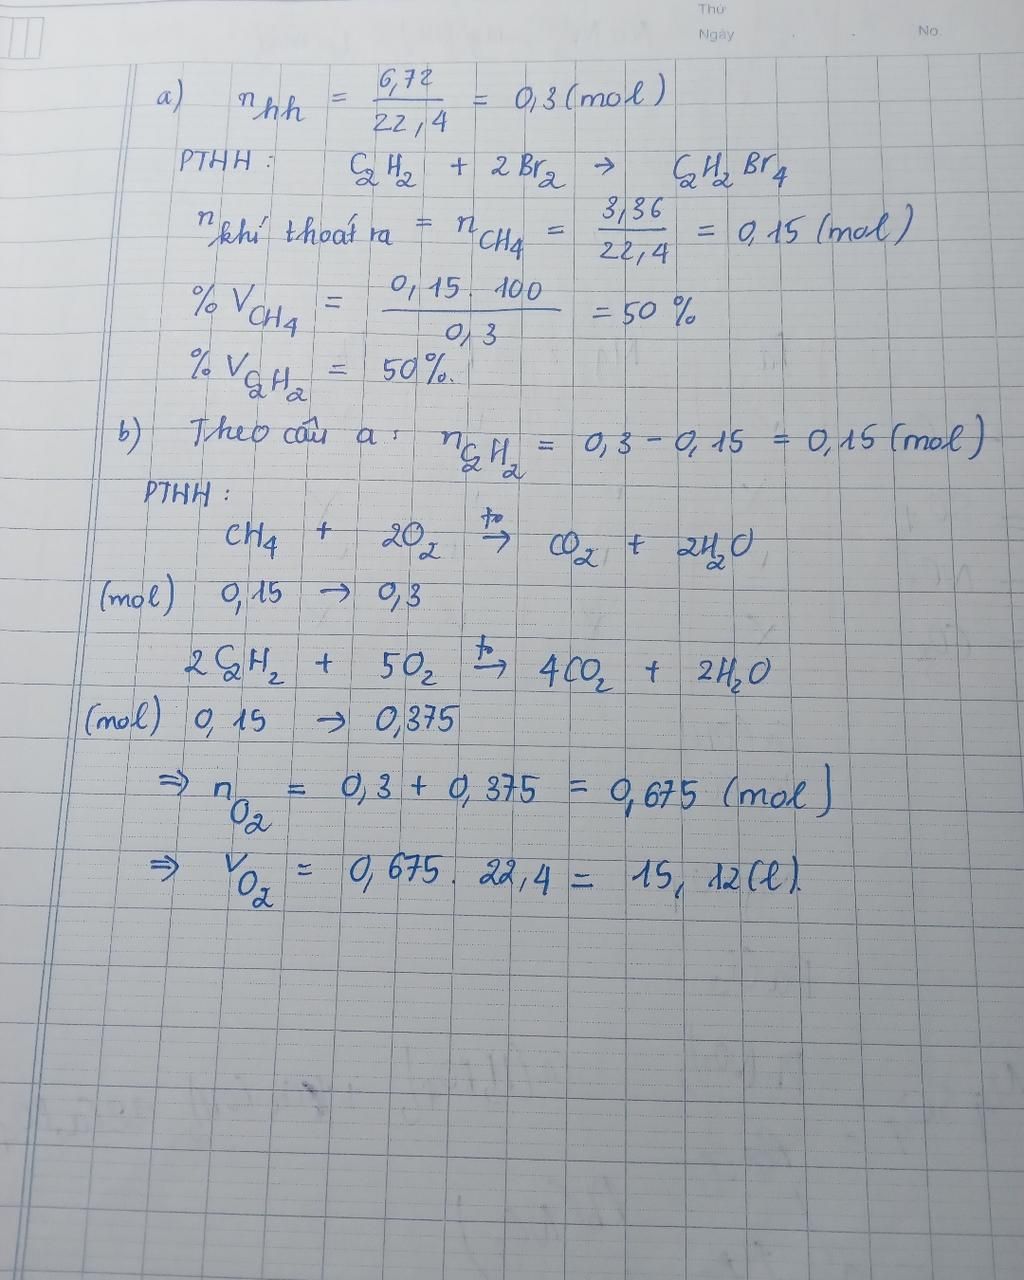 Thứ
Ngày No.
a) nhh = 6,72/22,4 = 0,3 (mol)
PTHH : C₂H₂ + 2Br₂ → C₂H₂Br₄
nkhí thoát ra = nCH₄ = 3,36/22,4 = 0,15 (mol)
% VCH₄ = 0,15 . 100/0,3 = 50 %
% VC₂H₂ = 50%.
b) Theo câu a : nC₂H₂ = 0,3 - 0,15 = 0,15 (mol)
PTHH :
CH₄ + 2O₂ t° → CO₂ + 2H₂O
(mol) 0,15 → 0,3
2C₂H₂ + 5O₂ t° → 4CO₂ + 2H₂O
(mol) 0,15 → 0,375
⇒ nO₂ = 0,3 + 0,375 = 0,675 (mol)
⇒ VO₂ = 0,675 . 22,4 = 15,12 (l).